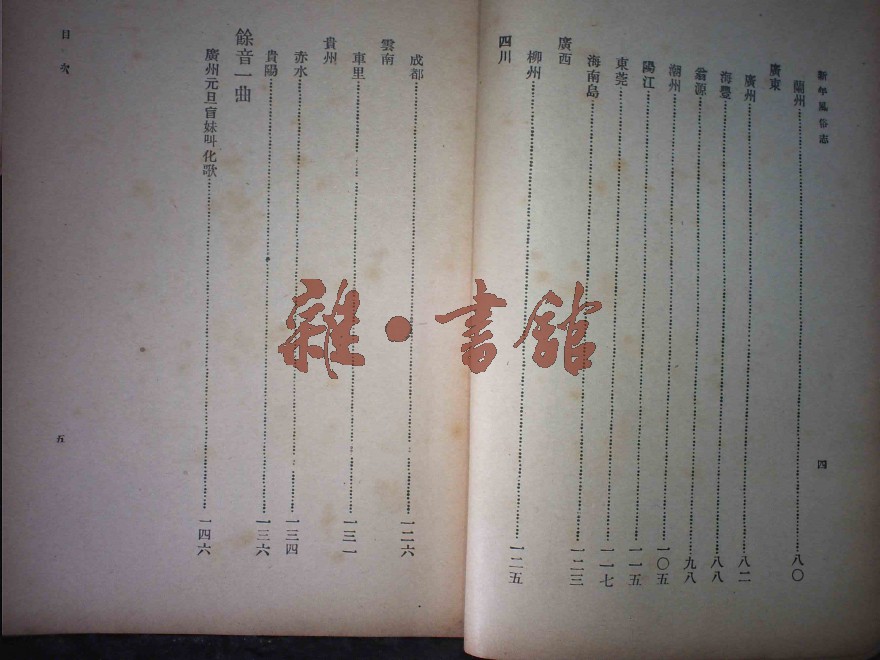 新年風俗志
蘭州……八〇
廣東
廣州……八二
海豐……八八
翁源……九八
潮州……一〇五
陽江……一一五
東莞……一一七
海南島……一二三
廣西
柳州……一二五
四川
四
成都……一二六
雲南
車里……一三一
貴州
赤水……一三四
貴陽……一三六
餘音一曲
廣州元旦盲妹叫化歌……一四六
目次
五
雜·書館